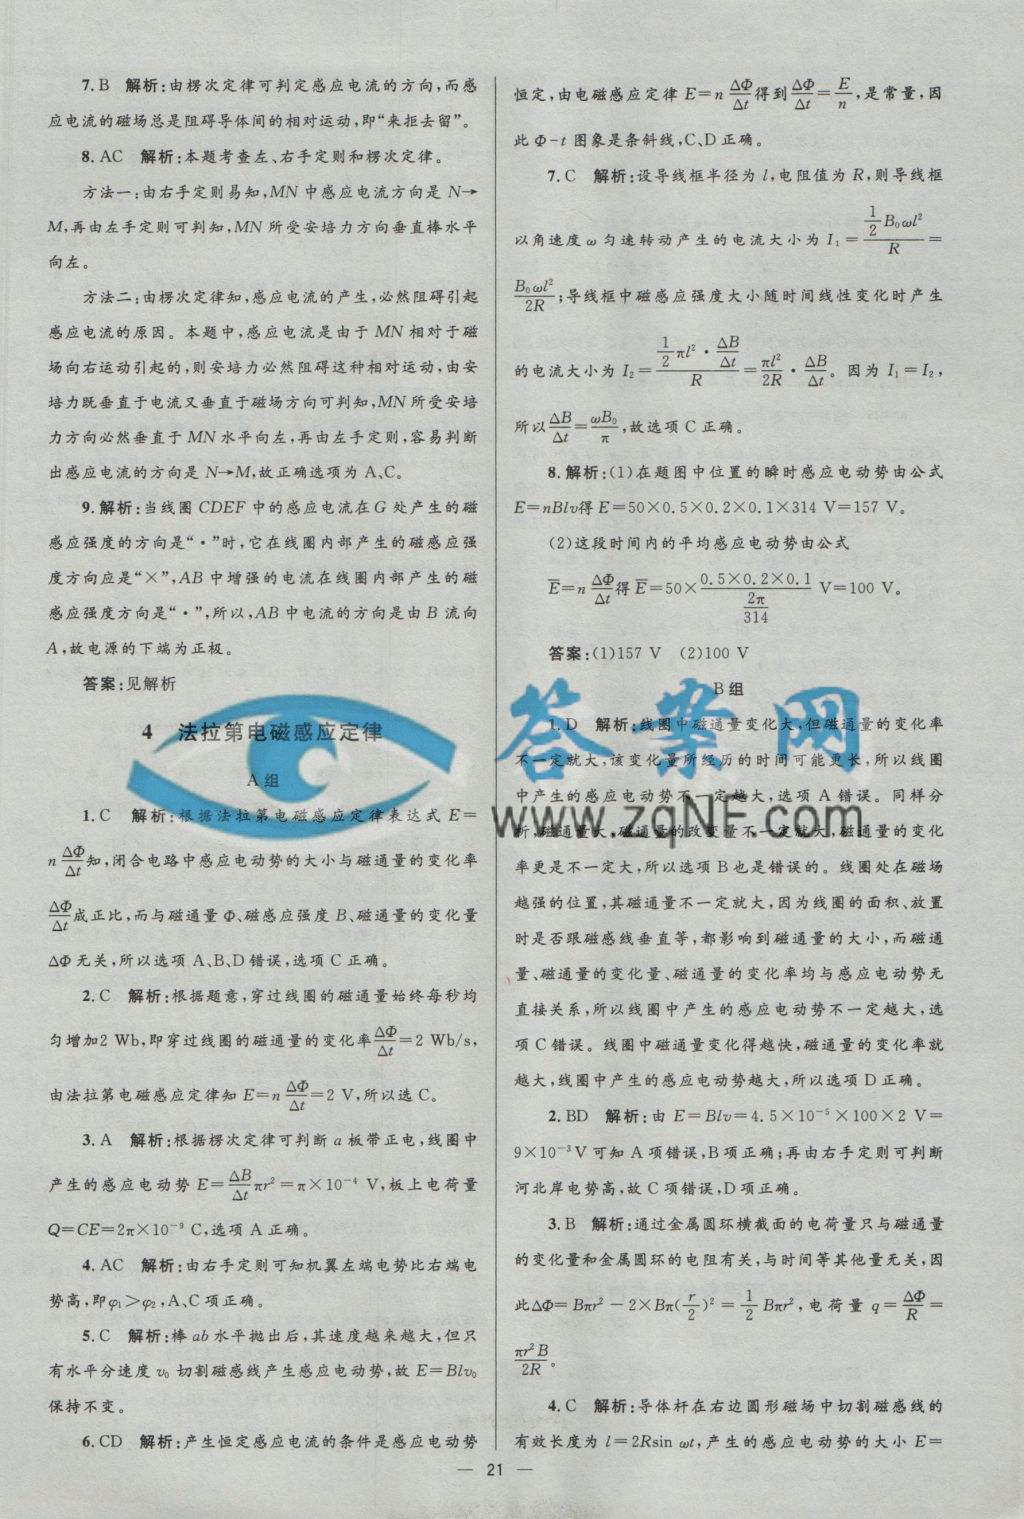 7. B　解析:由楞次定律可判定感应电流的方向,而感
应电流的磁场总是阻碍导体间的相对运动,即“来拒去留”。
8. AC　解析:本题考查左、右手定则和楞次定律。
方法一:由右手定则易知,MN 中感应电流方向是 N→
M,再由左手定则可判知,MN 所受安培力方向垂直棒水平
向左。
方法二:由楞次定律知,感应电流的产生,必然阻碍引起
感应电流的原因。本题中,感应电流是由于 MN 相对于磁
场向右运动引起的,则安培力必然阻碍这种相对运动,由安
培力既垂直于电流又垂直于磁场方向可判知,MN 所受安培
力方向必然垂直于 MN 水平向左,再由左手定则,容易判断
出感应电流的方向是 N→M,故正确选项为 A、C。
9. 解析:当线圈 CDEF 中的感应电流在 G 处产生的磁
感应强度的方向是“·”时,它在线圈内部产生的磁感应强
度方向应是“×”,AB 中增强的电流在线圈内部产生的磁
感应强度方向是“·”,所以,AB 中电流的方向是由 B 流向
A,故电源的下端为正极。
答案:见解析
4　法拉第电磁感应定律
A 组
1. C　解析:根据法拉第电磁感应定律表达式 E=
n ΔΦ/Δt 知,闭合电路中感应电动势的大小与磁通量的变化率
ΔΦ/Δt 成正比,而与磁通量 Φ、磁感应强度 B、磁通量的变化量
ΔΦ 无关,所以选项 A、B、D 错误,选项 C 正确。
2. C　解析:根据题意,穿过线圈的磁通量始终每秒均
匀增加2 Wb,即穿过线圈的磁通量的变化率 ΔΦ/Δt =2 Wb/s,
由法拉第电磁感应定律知 E=n ΔΦ/Δt =2 V,所以选 C。
3. A　解析:根据楞次定律可判断 a 板带正电,线圈中
产生的感应电动势 E= ΔB/Δt πr²=π×10⁻⁴ V,板上电荷量
Q=CE=2π×10⁻⁹ C,选项 A 正确。
4. AC　解析:由右手定则可知机翼左端电势比右端电
势高,即φ₁>φ₂,A、C 项正确。
5. C　解析:棒 ab 水平抛出后,其速度越来越大,但只
有水平分速度 v₀ 切割磁感线产生感应电动势,故 E=Blv₀
保持不变。
6. CD　解析:产生恒定感应电流的条件是感应电动势
恒定,由电磁感应定律 E=n ΔΦ/Δt 得到 ΔΦ/Δt = E/n ,是常量,因
此 Φ-t 图象是条斜线,C、D 正确。
7. C　解析:设导线框半径为 l,电阻值为 R,则导线框
以角速度 ω 匀速转动产生的电流大小为 I₁= (1/2 B₀ωl²)/R =
B₀ωl²/2R ;导线框中磁感应强度大小随时间线性变化时产生
的电流大小为 I₂= (1/2 πl²· ΔB/Δt)/R = πl²/2R · ΔB/Δt 。因为 I₁=I₂,
所以 ΔB/Δt = ωB₀/π ,故选项 C 正确。
8. 解析:(1)在题图中位置的瞬时感应电动势由公式
E=nBlv得 E=50×0.5×0.2×0.1×314 V=157 V。
(2)这段时间内的平均感应电动势由公式
E̅=n ΔΦ/Δt 得 E̅=50× (0.5×0.2×0.1)/(2π/314) V=100 V。
答案:(1)157 V　(2)100 V
B 组
1. D　解析:线圈中磁通量变化大,但磁通量的变化率
不一定就大,该变化量所经历的时间可能更长,所以线圈
中产生的感应电动势不一定越大,选项 A 错误。同样分
析,磁通量大,磁通量的改变量不一定就大,磁通量的变化
率更是不一定大,所以选项 B 也是错误的。线圈处在磁场
越强的位置,其磁通量不一定就大,因为线圈的面积、放置
时是否跟磁感线垂直等,都影响到磁通量的大小,而磁通
量、磁通量的变化量、磁通量的变化率均与感应电动势无
直接关系,所以线圈中产生的感应电动势不一定越大,选
项 C 错误。线圈中磁通量变化得越快,磁通量的变化率就
越大,线圈中产生的感应电动势越大,所以选项 D 正确。
2. BD　解析:由 E=Blv=4.5×10⁻⁵×100×2 V=
9×10⁻³ V 可知 A 项错误,B项正确;再由右手定则可判断
河北岸电势高,故 C 项错误,D项正确。
3. B　解析:通过金属圆环横截面的电荷量只与磁通量
的变化量和金属圆环的电阻有关,与时间等其他量无关,因
此ΔΦ=Bπr²-2×Bπ(r/2)²= 1/2 Bπr²,电荷量 q= ΔΦ/R =
πr²B/2R 。
4. C　解析:导体杆在右边圆形磁场中切割磁感线的
有效长度为 l=2Rsin ωt,产生的感应电动势的大小 E=
— 21 —
答案网
www.zqNF.com